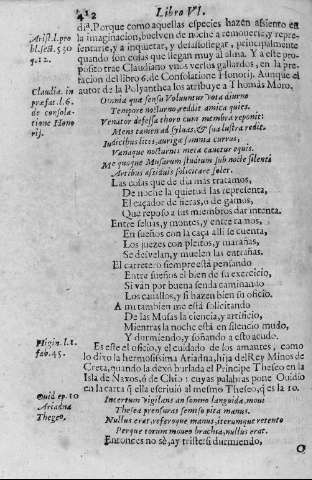 412 Libro VI.
dia. Porque como aquellas especies hazen assiento en
la imaginacion, buelven de noche a remouerse, y repre-
sentarse, y a inquietar, y desassossegar, principalmente
quando son cosas que llegan muy al alma. Y a este pro-
posito trae Claudiano vnos versos gallardos, en la pre-
facion del libro 6. de Consolatione Honorij. Aunque el
autor de la Polyanthea los atribuye a Thomas Moro.
Arist. l.
pro
bl. sect. 5 30
q. 12.
Claudia. in
præfat. l. 6.
de conso-
latione Hono
rij.
Omnia quæ sensu Voluuntur vota diurno
Tempore nocturno, reddit amica quies.
Venator defessa thoro cum membra reponit:
Mens tamen ad syluas, & sua lustra redit.
Iudicibus lites, aurigæ somnia currus,
Vanaque nocturnis meta cauetur equis.
Me quoque Musarum studium sub nocte silenti
Artibus assiduis solicitare solet.
Las cosas que de dia mas tratamos,
De noche la quietud las representa,
El caçador de fieras, ò de gamos,
Que reposo a sus miembros dar intenta.
Entre seluas, y montes, y entre ramos,
En sueños con la caça alli se cuenta,
Los juezes con pleitos, y marañas,
Se desvelan, y muelen las entrañas.
El carretero siempre està pensando
Entre sueños el bien de su exercicio,
Si van por buena senda caminando
Los cauallos, y si hazen bien su oficio.
A mi tambien me està solicitando
De las Musas la ciencia, y artificio,
Mientras la noche està en silencio mudo,
Y durmiendo, y soñando a esto acudo.
Higin. l. 1.
fab. 45.
Es este el oficio, y el cuidado de los amantes, como
lo dixo la hermosissima Ariadna, hija del Rey Minos de
Creta, quando la dexò burlada el Principe Theseo en la
Isla de Naxos, ò de Chio: cuyas palabras pone Ouidio
en la carta q̃ ella escriuiò al mesmo Theseo, q̃ es la 10.
Ouid ep. 10
Ariadna
Theseo.
Incertum vigilans an somno languida, moui
Thesea prensuras semisopita manus.
Nullus erat, referoque manus, iterumque retento
Perque torum moueo brachia, nullus erat.
Entonces no sè, ay triste si durmiendo,
O